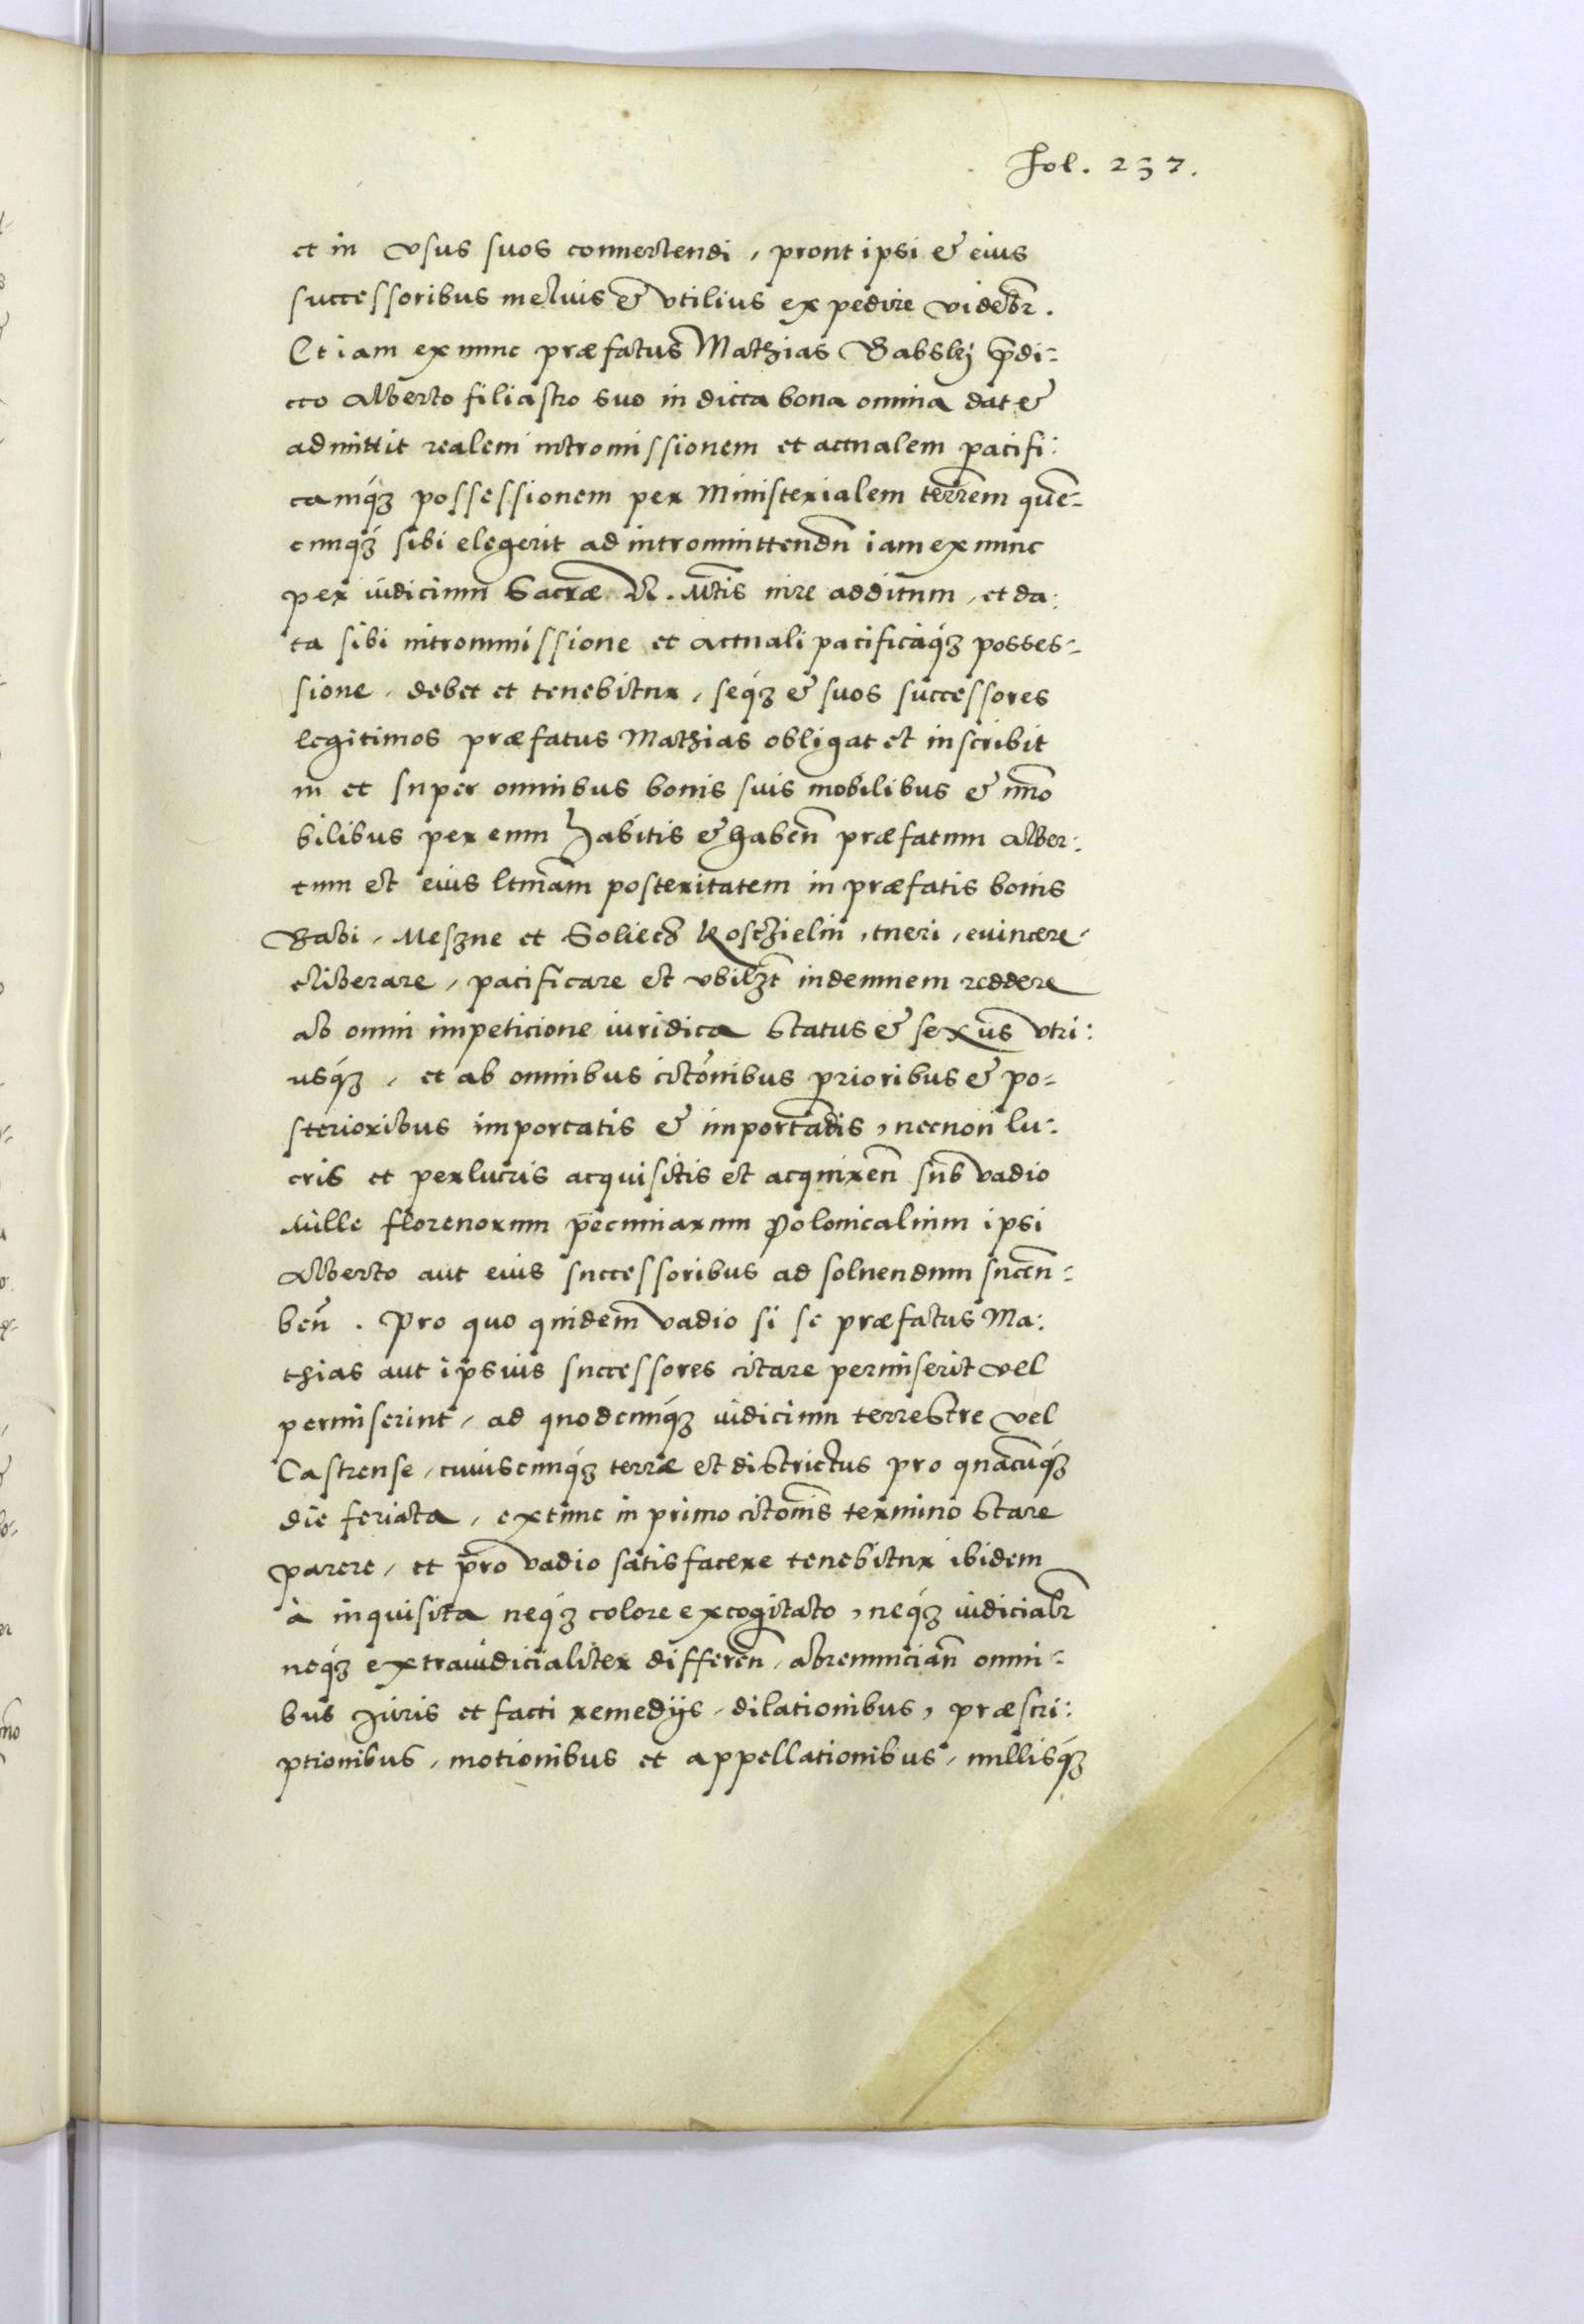 Fol. 237.
et in vsus suos conuertendi, prout ipsi & eius
successoribus melius & vtilius expedire videbr.
Et iam ex nunc præfatus Mathias Babskj p̄di-
cto Alberto filiastro suo in dicta bona omnia dat &
admittit realem intromissionem et actualem pacifi-
camq́ꝫ possessionem per Ministerialem terrem̄ quē-
cunq́ꝫ sibi elegerit ad intromittendn̄ iam ex nunc
per iudicium Sacræ R. Mt̄is iure additum, et da-
ta sibi intromissione et actuali pacificaq́ꝫ posses-
sione, debet et tenebitur, seq́ꝫ & suos successores
legitimos præfatus Mathias obligat et inscribit
in et super omnibus bonis suis mobilibus & im̄o
bilibus per eum habitis & haben̄ præfatum Alber-
tum et eius ltmam̄ posteritatem in præfatis bonis
Babi, Meszne et Soliecz Koschielni, tueri, euincere
eliberare, pacificare et vbilꝫt indemnem reddere
ab omni impeticione iuridica status & sexus vtri-
usq́ꝫ, et ab omnibus citōnibus prioribus & po-
sterioribus importatis & importādis, necnon lu-
cris et perlucris acquisitis et acquiren̄ sub vadio
Mille florenorum pecuniarum Polonicalium ipsi
Alberto aut eius successoribus ad soluendum succū-
ben̄. Pro quo quidem vadio si se præfatus Ma-
thias aut ipsius successores citare permiserit vel
permiserint, ad quodcunq́ꝫ iudicium terrestre vel
Castrense, cuiuscunq́ꝫ terræ et districtus pro quacūq́ꝫ
die feriata, extunc in primo citōnis termino stare
parere, et pro vadio satisfacere tenebitur ibidem
à inquisita neq́ꝫ colore excogitato, neq́ꝫ iudicialr̄
neq́ꝫ extraiudicialiter differen̄, abrenuncian̄ omni-
bus Juris et facti remedijs, dilationibus, præscri-
ptionibus, motionibus et appellationibus, nullisq́ꝫ